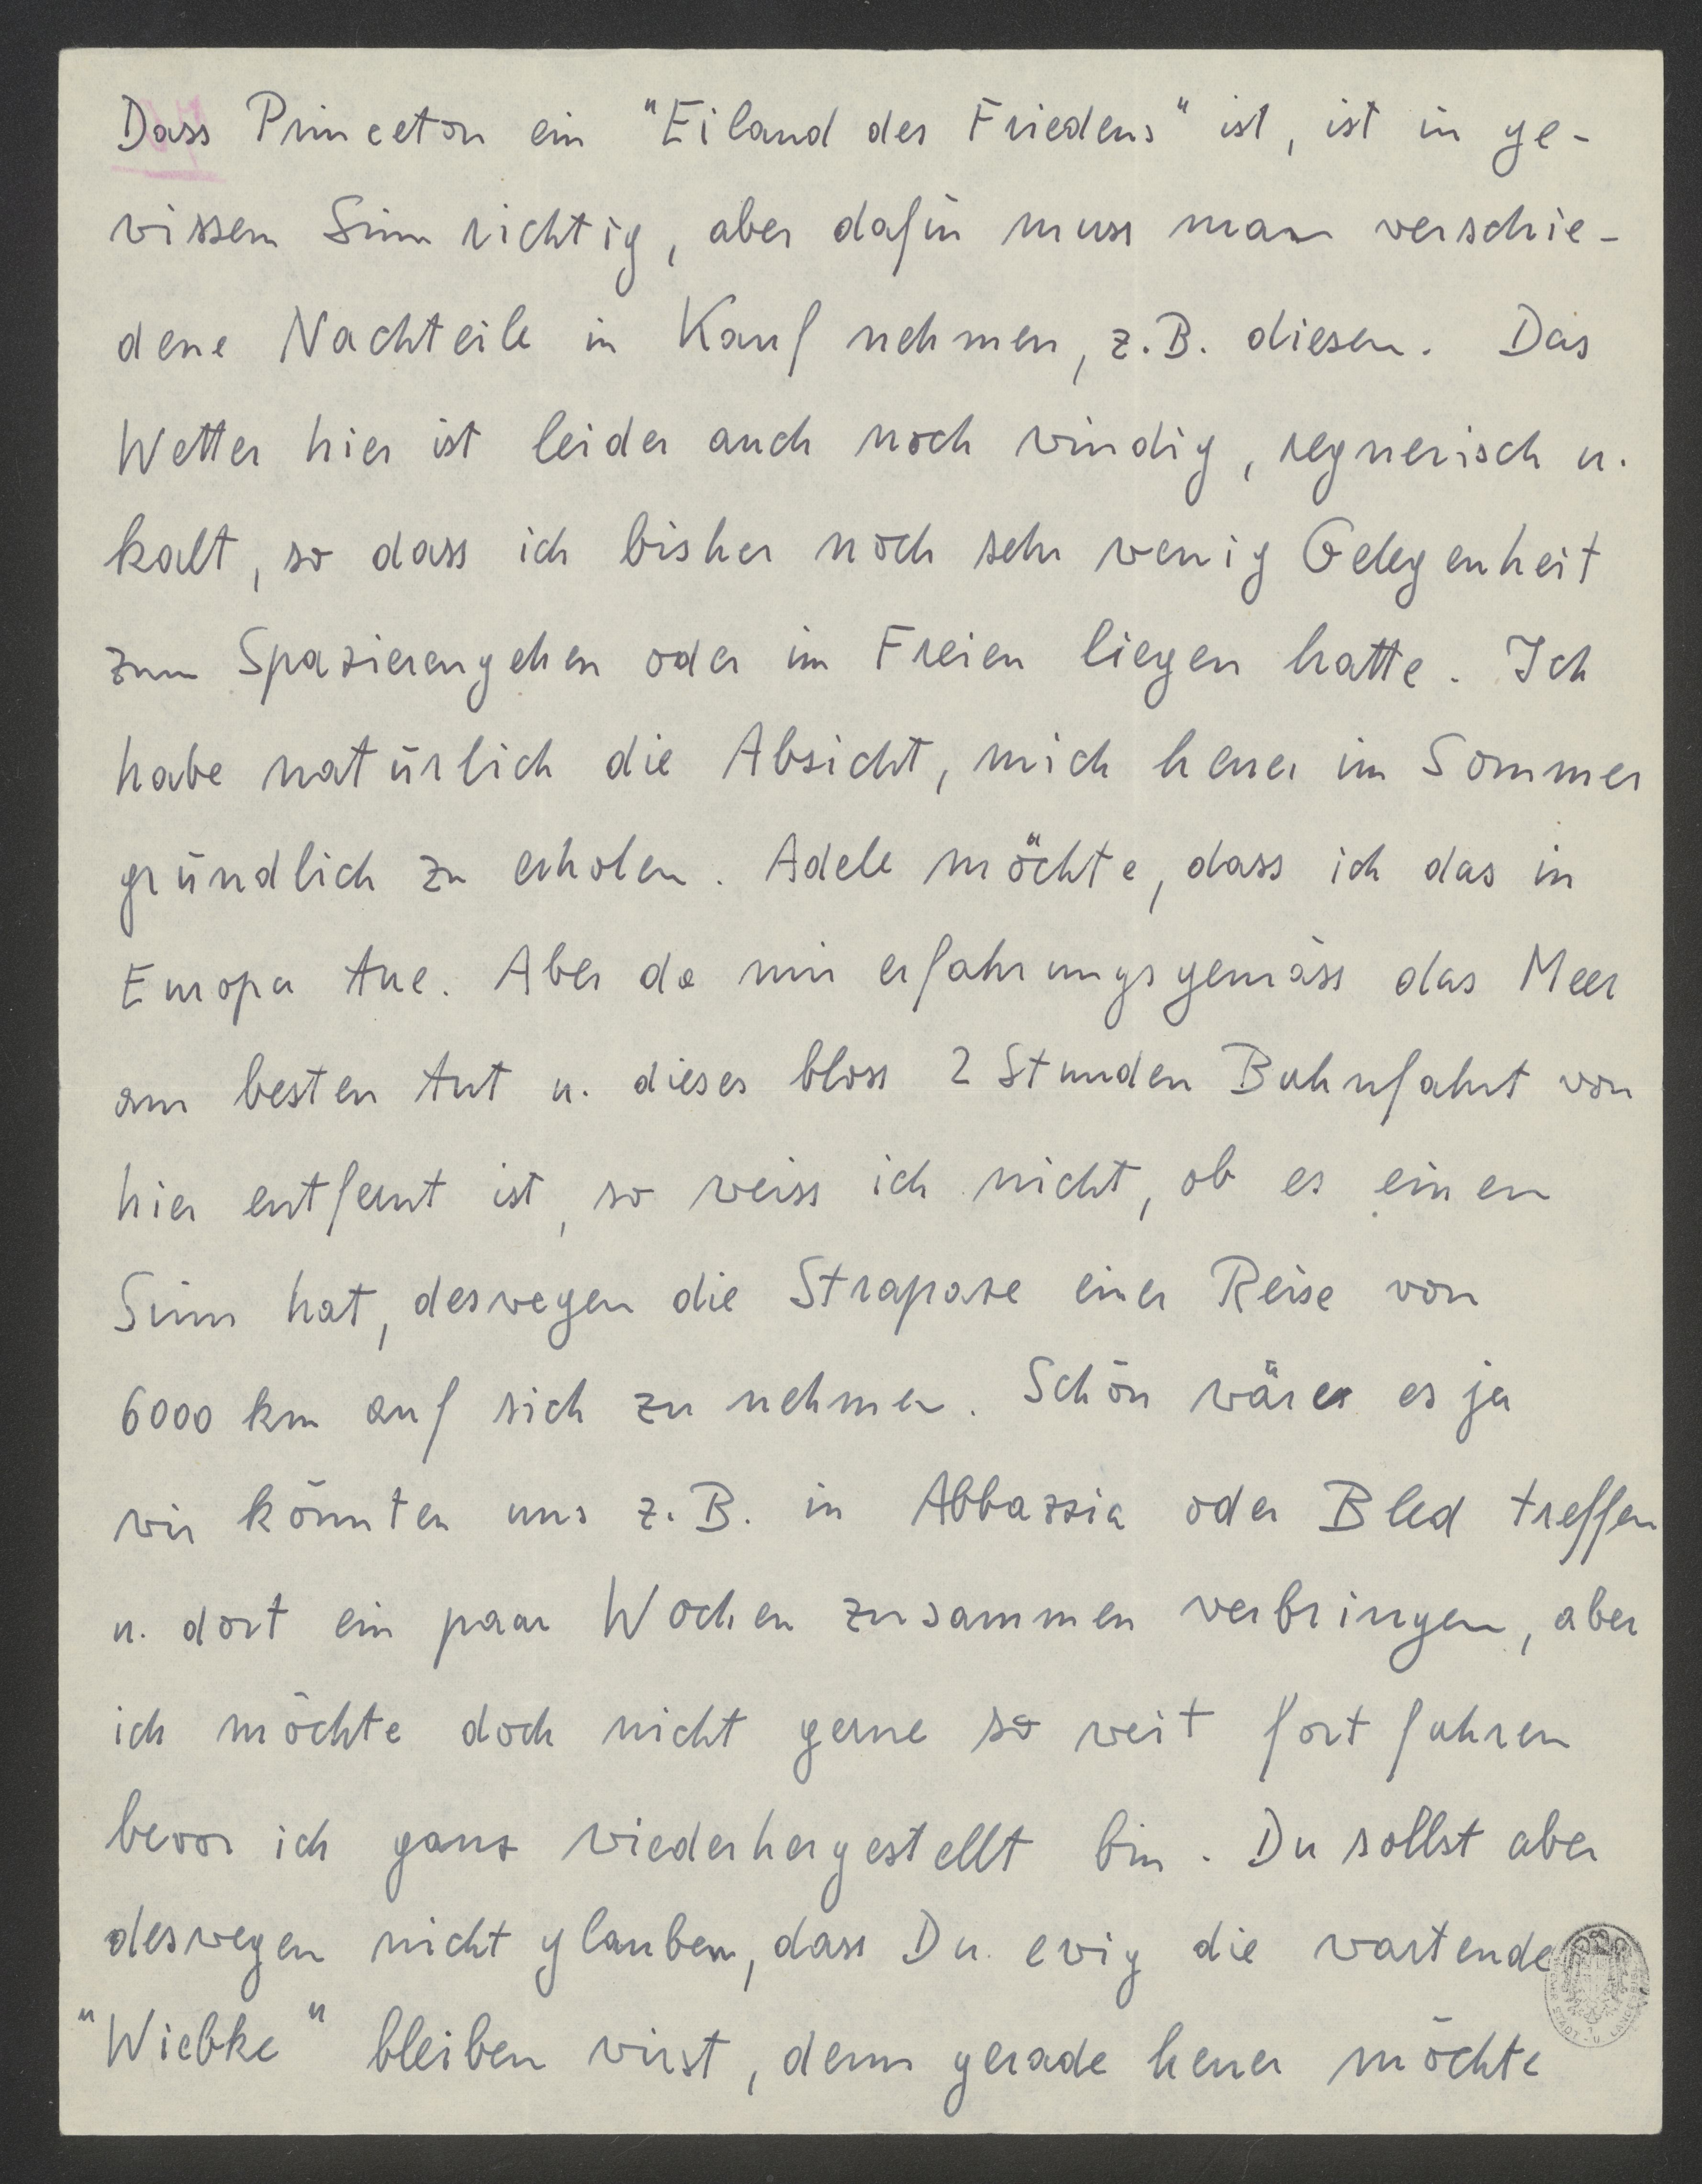 Dass Princeton ein "Eiland des Friedens" ist, ist in ge-
wissem Sinn richtig, aber dafür muss man verschie-
dene Nachteile in Kauf nehmen, z.B. diesen. Das
Wetter hier ist leider auch noch windig, regnerisch u.
kalt, so dass ich bisher noch sehr wenig Gelegenheit
zum Spazierengehen oder im Freien liegen hatte. Ich
habe natürlich die Absicht, mich heuer im Sommer
gründlich zu erholen. Adele möchte, dass ich das in
Europa tue. Aber da mir erfahrungsgemäss das Meer
am besten tut u. dieses bloss 2 Stunden Bahnfahrt von
hier entfernt ist, so weiss ich nicht, ob es einen
Sinn hat, deswegen die Strapaze einer Reise von
6000 km auf sich zu nehmen. Schön wäre es ja
wir könnten uns z.B. in Abbazzia oder Bled treffen
u. dort ein paar Wochen zusammen verbringen, aber
ich möchte doch nicht gerne so weit fort fahren
bevor ich ganz wiederhergestellt bin. Du sollst aber
deswegen nicht glauben, dass Du ewig die wartende
"Wiebke" bleiben wirst, denn gerade heuer möchte